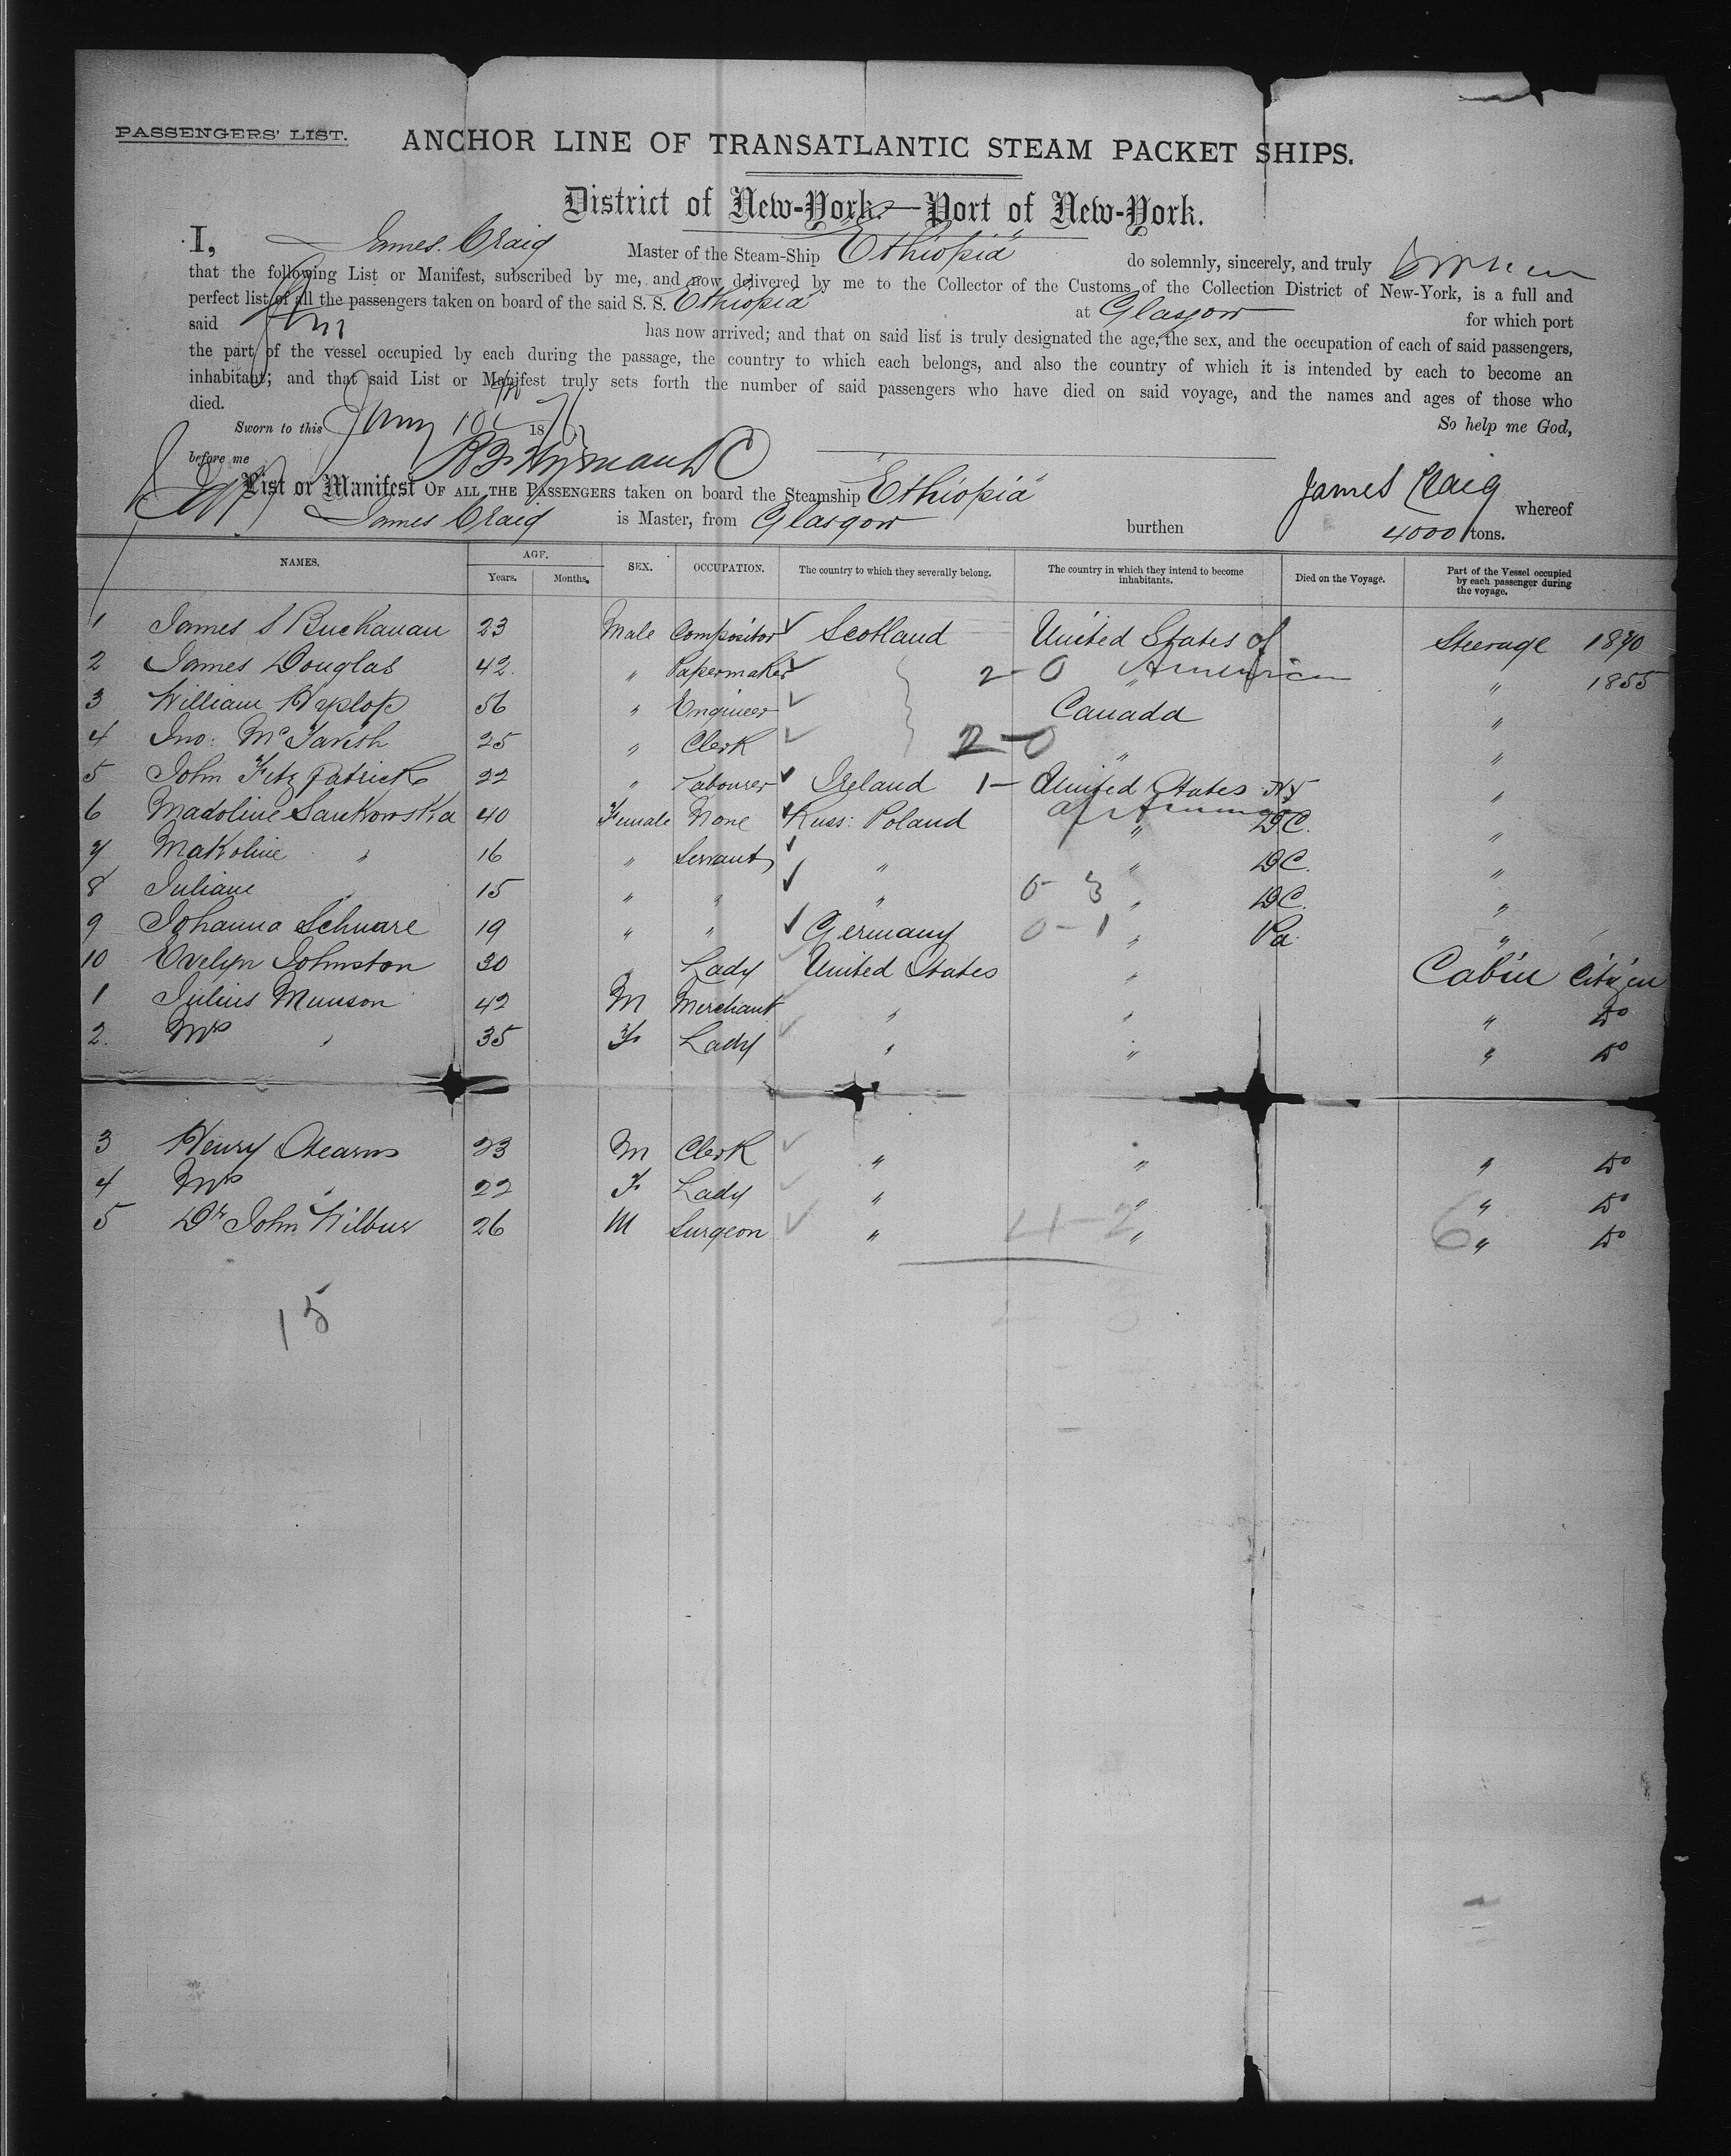 PASSENGERS' LIST.
ANCHOR LINE OF TRANSATLANTIC STEAM PACKET SHIPS.
District of New-York.—Port of New-York.
I, James Craig Master of the Steam-Ship "Ethiopia" do solemnly, sincerely, and truly
that the following List or Manifest, subscribed by me, and now delivered by me to the Collector of the Customs of the Collection District of New-York, is a full and
perfect list of all the passengers taken on board of the said S. S. Ethiopia at Glasgow for which port
said has now arrived; and that on said list is truly designated the age, the sex, and the occupation of each of said passengers,
the part of the vessel occupied by each during the passage, the country to which each belongs, and also the country of which it is intended by each to become an
inhabitant; and that said List or Manifest truly sets forth the number of said passengers who have died on said voyage, and the names and ages of those who
died. So help me God,
Sworn to this 18
before me
James Craig
List or Manifest OF ALL THE PASSENGERS taken on board the Steamship "Ethiopia" whereof
James Craig is Master, from Glasgow burthen 4000 tons.
NAMES. AGE. Years. Months. SEX. OCCUPATION. The country to which they severally belong. The country in which they intend to become inhabitants. Died on the Voyage. Part of the Vessel occupied by each passenger during the voyage.
1 James S Buchanan 23 Male Compositor Scotland United States of Steerage 1870
2 James Douglas 42 " Papermaker 2-0 America " " 1855
3 William Hyslop 56 " Engineer Canada "
4 Jno: McTavish 25 " Clerk 2-0 " "
5 John Fitzpatrick 22 " Labourer Ireland 1- United States NY "
of America
6 Madoline Sankowska 40 Female None Russ: Poland " DC. "
7 Makoline " 16 " Servant " " DC. "
8 Juliane " 15 " " " 0-3 " DC. "
9 Johanna Schuare 19 " " Germany 0-1 " Pa. "
10 Evelyn Johnston 30 " Lady United States " Cabin Citizen
1 Julius Munson 42 M Merchant " " " Do
2. Mrs " 35 F Lady " " " Do
3 Henry Stearns 23 M Clerk " " " Do
4 Mrs " 22 F Lady " " " Do
5 Dr John Wilbur 26 M Surgeon " 4-2 " 6 " Do
15